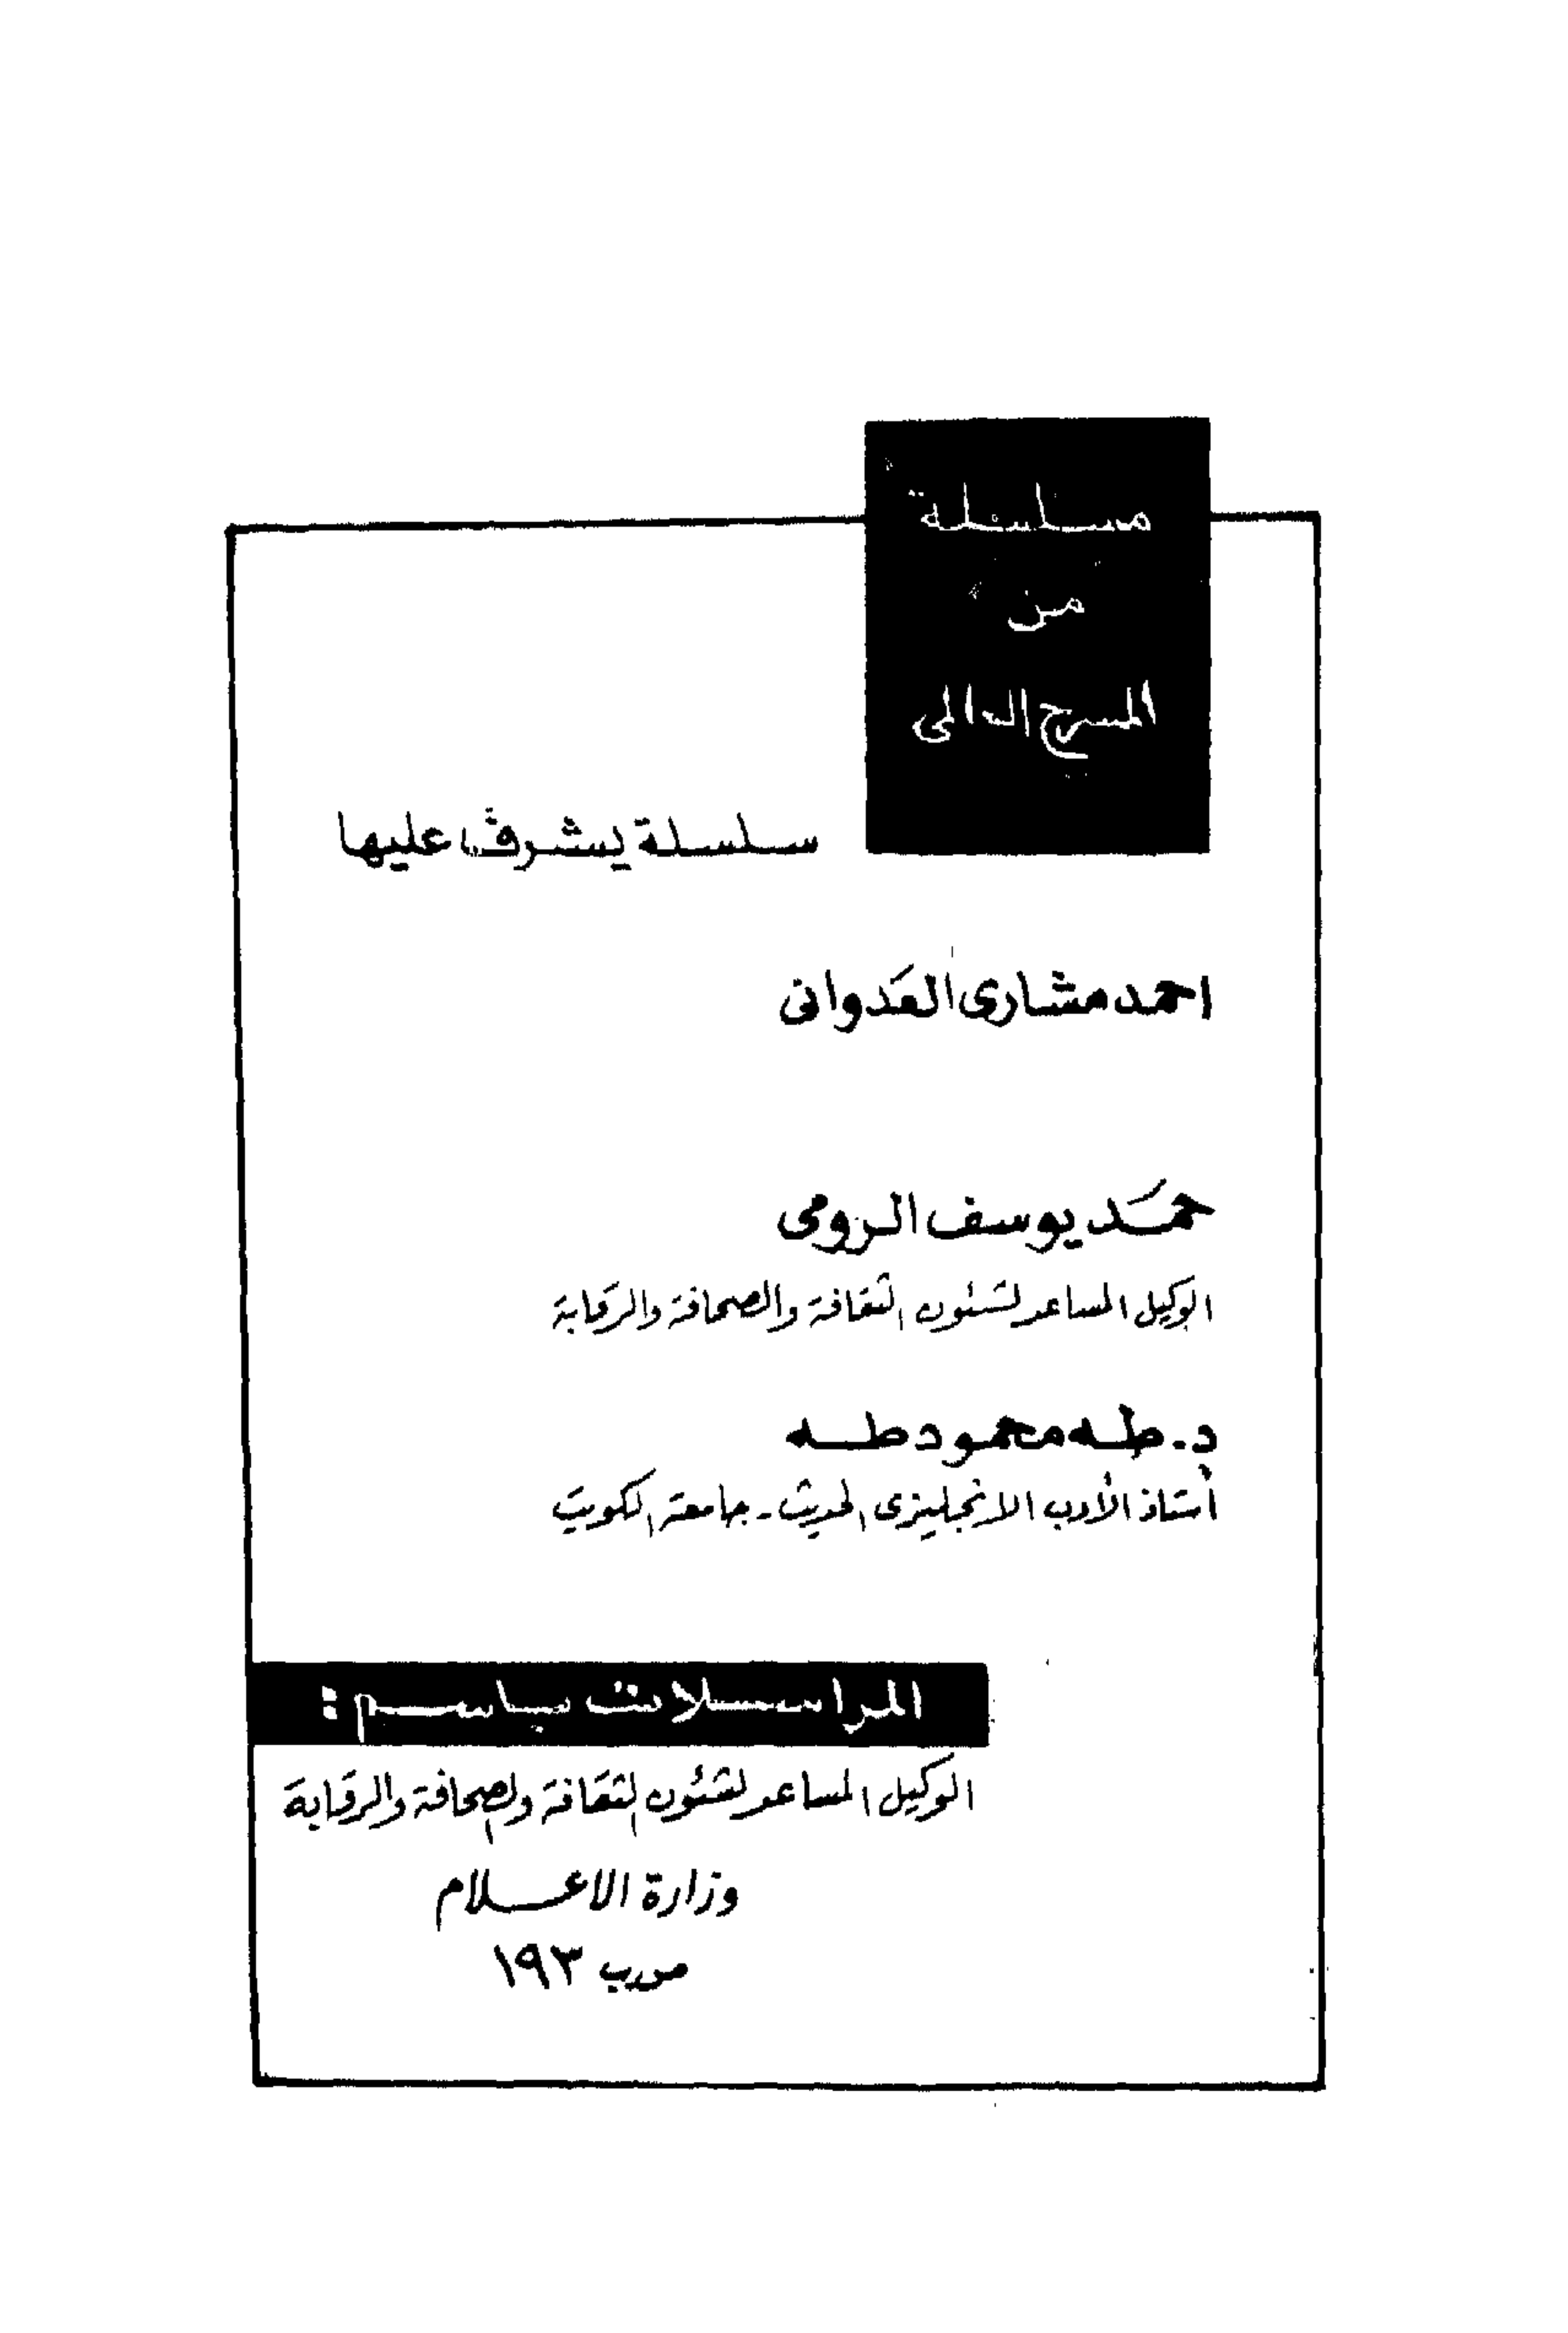 سلسلة
من
المسرح العالمى
سلسلة يشرف عليها
احمد مشارى العدوانى
حمد يوسف الرومى
الوكيل المساعد لشئون الثقافة والصحافة والرقابة
د. طه محمود طه
أستاذ الأدب الانجليزى الحديث - جامعة الكويت
المراسلات باسم :
الوكيل المساعد لشئون الثقافة والصحافة والرقابة
وزارة الاعلام
ص.ب ١٩٣